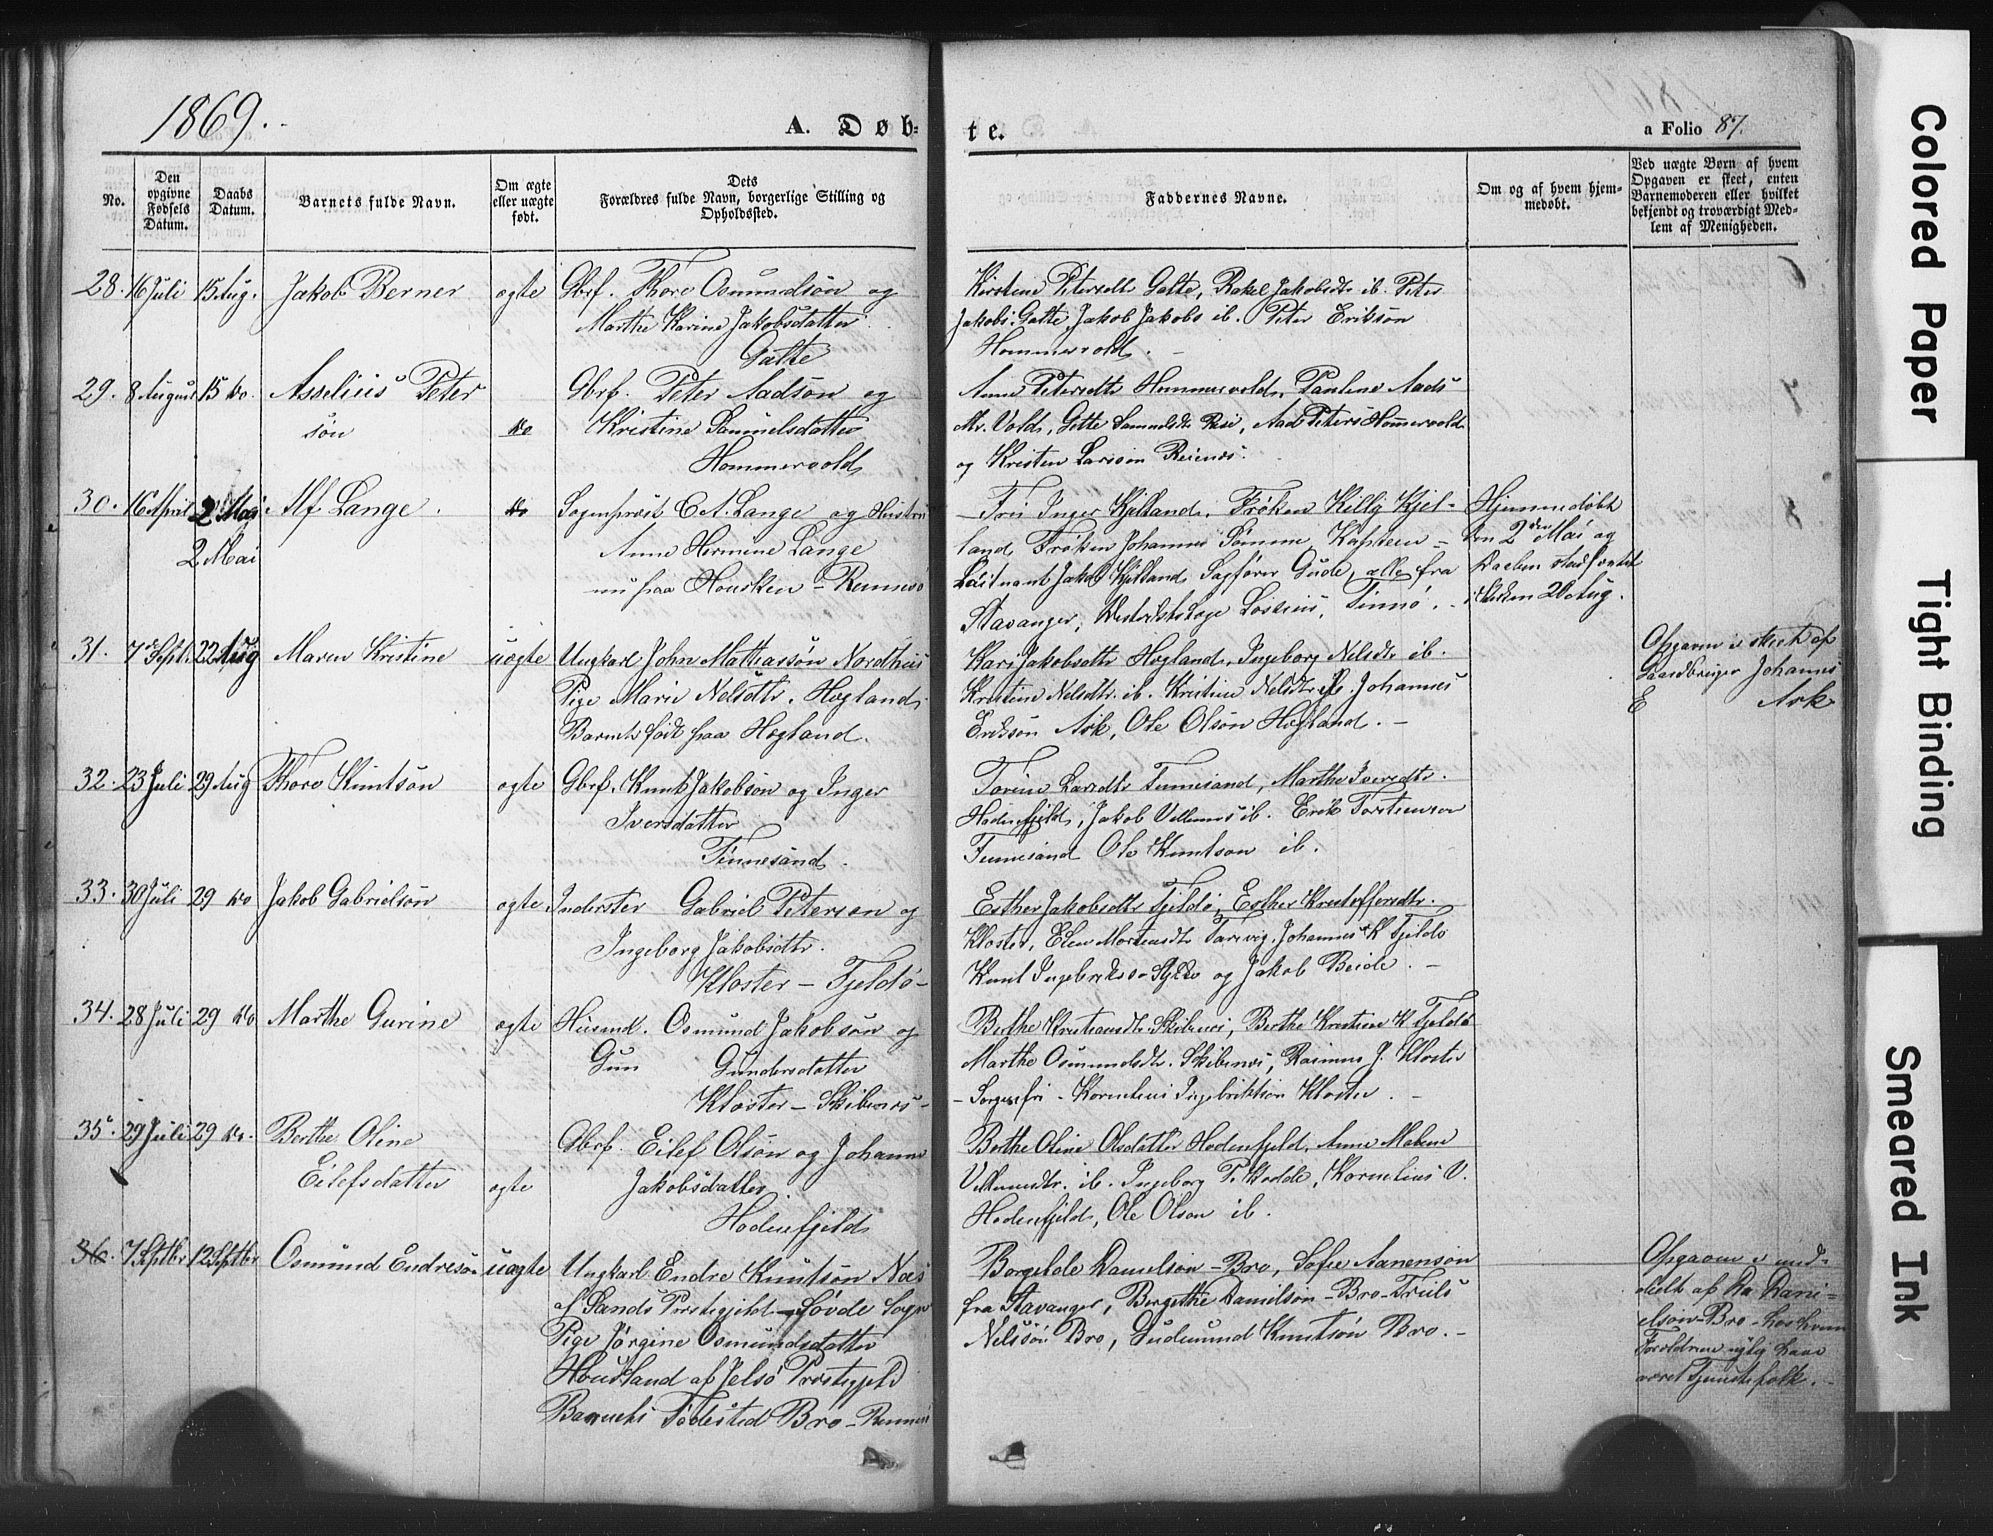 1869.
A. Døb-
te.
a Folio 87.
No.
Den
opgivne
Fødsels
Datum.
Daabs
Datum.
Barnets fulde Navn.
Om ægte
eller uægte
født.
Dets
Forældres fulde Navn, borgerlige Stilling og
Opholdssted.
Faddernes Navne.
Om og af hvem hjem-
medøbt.
Ved uægte Børn af hvem
Opgaven er skeet, enten
Barnemoderen eller hvilket
bekjendt og troværdigt Med-
lem af Menigheden.
28. 16 Juli 15 Aug. Jakob Berner ægte Gbrf. Thore Osmundsøn og
Marthe Karine Jakobsdatter
Galte
Kirstine Petersdtr Galte, Rakel Jakobsdtr ib. Peter
Jakobs. Galte, Jakob Jakobs ib. Peter Eriksøn
Hommersvold. -
29. 8 August 15 do. Asselius Peter
søn
do
Gbrf. Peter Aadsøn og
Kristine Samuelsdatter
Hommersvold
Anne Petersdtr Hommersvold, Pauline Aads
Mr. Vold, Gitte Samuelsdtr, Aad Peters Hommersvold
og Kristen Larssøn
30. 16 April 2 Mai Alf Lange. do
2 Mai
Sognepræst C. A. Lange og Hustru
Anne Hermine Lange
nu paa Housken - Rennesø
Fru Inger Kjelland, Frøken Killy Kjel-
land, Frøken Johanne Sømme, Kaptein -
Laitnant Jakob Kjelland, Sagfører Gude, alle fra
Stavanger, Distriktslæge Lossius,
Hjemmedøbt
den 2den Mai og
Daaben stadfæstet
i Kirken Aug.
31. 7 Sept. 22 Aug Maren Kristine uægte Ungkarl John Mathiassøn Nordhuus
Pige Marie Nelsdtr. Hogland
Barnet født paa Hogland.
Kari Jakobsdtr Hogland, Ingeborg Nelsdtr ib.
Kristine Nelsdtr. ib. Kristine Nelsdtr ib. Johannes
Eriksøn Ask, Ole Olsøn Hogland. -
Opgaven er skeet af
Gaardbruger Johannes
E Ask
32. 23 Juli 29 Aug Thore Knutsøn ægte Gbrf. Knut Jakobsøn og Inger
Iversdatter
Finnesand.
Torine Larsdtr Finnesand, Marthe Iversdtr.
Hodnefjeld, Jakob Villumss ib. Erik Torstensen
Finnesand Ole Knutson ib.
33. 30 Juli 29 do Jakob Gabrielsøn ægte Inderster Gabriel Petersen og
Ingeborg Jakobsdtr.
Kloster - Fjeldø -
Esther Jakobsdtr Fjeldø, Esther Kristoffersdtr.
Kloster, Elen Mortensdtr, Johannes K Fjeldø
Knut Ingebrikss og Jakob. -
34. 28 Juli 29 do Marthe Gurine ægte Husmd. Osmund Jakobsøn og
Gun Gundersdatter
Kloster - Skibenes -
Berthe Skibenes, Berthe Kristine K Fjeldø
Marthe Osmundsdtr. Skibenes, Rasmus J. Kloster
- Sorgenfri - Kornelius Ingebriktson Kloster. -
35. 29 Juli 29 do. Berthe Oline
Eilefsdatter ægte
Gbrf. Eilef Olsøn og Johanne
Jakobsdatter
Hodnefjeld
Berthe Oline Olsdatter Hodnefjeld, Anne Malene
Villumsdtr. ib. Ingeborg T. Kodde, Kornelius V.
Hodnefjeld, Ole Olson ib.
36. 7 Septbr 12 Septbr Osmund Endresøn uægte Ungkarl Endre Knutsøn Næs
af Sands Præstegjeld - Søvde Sogn
Pige Jørgine Osmundsdatter
Housland af Jelsø Præstegjeld
Barnets Fødested Bro - Rennesø
Borgelole Danielsøn - Bro, Sofie Aanensøn
fra Stavanger, Bergithe Danielsøn - Bro - Truls
Nelssøn Bro, Gudmund Knutsøn Bro. -
Opgaven er med-
delt af Danie-
elsøn - Bro - hos hvem
Forældrene nylig have
været Tjenestefolk. -
Colored Paper
Tight Binding
Smeared Ink